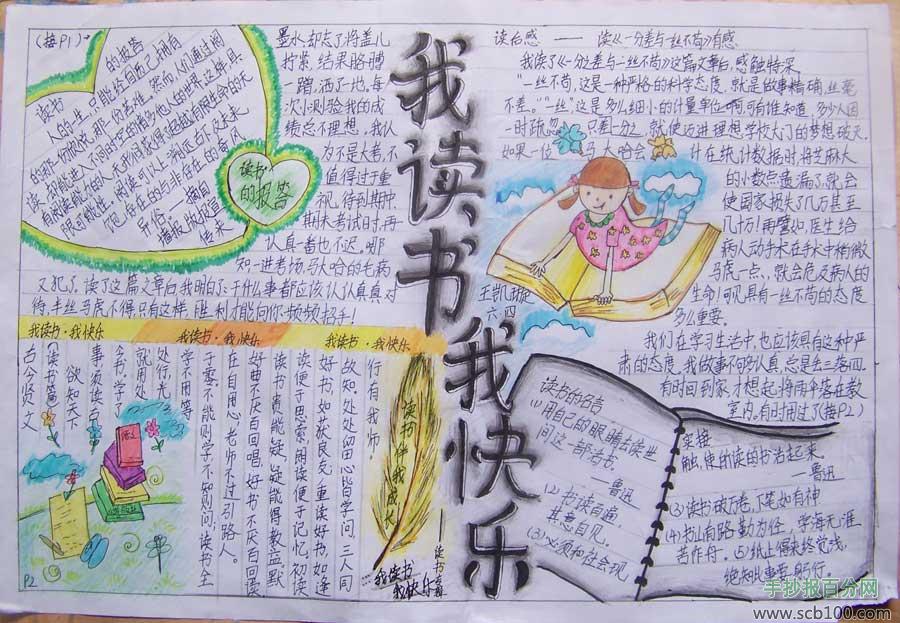 我读书 我快乐
读后感 —— 读《一分差与一丝不苟》有感
我读了《一分之差与一丝不苟》这篇文章后,感触特深。
"一丝不苟,这是一种严格的科学态度,就是做事精确,丝毫
不差。"一丝"这是多么细小的计量单位啊,可有谁知道,多少人因
一时疏忽 只差一分之,就使迈进理想学校大门的梦想破灭。
如果一位 马大哈会 计在统计数据时,将芝麻大
的小数点遗漏了,就会
使国家损失了几万甚至
几十万!再譬如,医生给
病人动手术在手术中稍微
马虎一点、就会危及病人的
生命!可见具有一丝不苟的态度
多么重要。
我们在学习生活中,也应该具有这种严
肃的态度。我做事不够认真,总是丢三落四。
有时回到家才想起将雨伞落在教
室内,有时用过了(接P2)
王凯旋
六.四
(接P1)
墨水,却忘了将盖儿
拧紧,结果胳膊
一蹭,洒了一地,每
次小测验我的成
绩总不理想,我认
为不是大考,不
值得过于重
视,得到期中
期末考试时,再
认真一者也不迟。哪
知一进考场,马大哈的毛病
又犯了,读了这篇文章后,我明白了:干什么事都应该认认真真对
待,半丝马虎不得,只有这样,胜利才能向你频频招手!
读书
的报答
的报答
读书
人的一生,只能给自己拥有
的那一份欣悦,那一份苦难。然而,人们通过阅
读,却能进入不同时空的诸多他人的世界。这样,具
有阅读能力的人,无形间获得了超越有限生命的无
限可能性。阅读可以上溯远古下及未来,
饱览存在的与非存在的奇风
异俗
传来
我读书·我快乐
我读书·我快乐
我读书·我快乐
古今贤文
读书篇
欲知天下
事,须读古
今书。学了
就用处
处行光,
学不用等
于零。不能则学,不知则问;读书全
在自用心,老师不过引路人。
好曲不厌百回唱,好书不厌百回读
读书贵能疑,疑能得教益。默
读便于思索,朗读便于记忆。初读
好书,如获良友;重读好书,如逢
故知。处处留心皆学问,三人同
行有我师。
读书伴我成长
——读书篇
我读书
我快乐
P2
读书的名言
(1)用自己的眼睛去读世
间这一部活书。
——鲁迅
(2)书读百遍,
其意自见。
(3)必须和社会现
实接
触,使的读的书活起来。
——鲁迅
(3)读书破万卷,下笔如有神
(4)书山有路勤为径,学海无涯
苦作舟。(5)纸上得来终觉浅,
绝知此事要躬行。
手抄报百分网
www.scb100.com